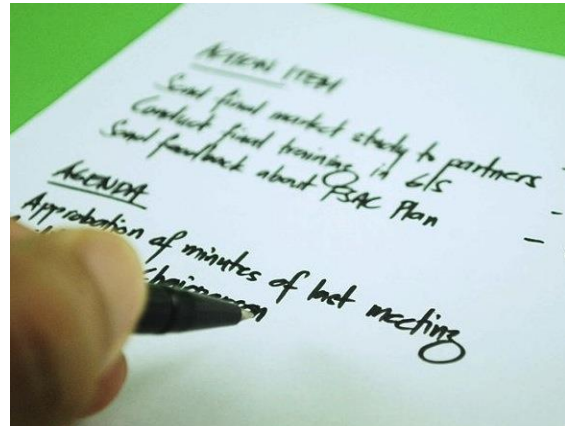 ACTION ITEM
Send final market study to partners -
Conduct final training in 6/5 -
Send feedback about PSAC Plan -
AGENDA
Approbation of minutes of last meeting
Chairperson